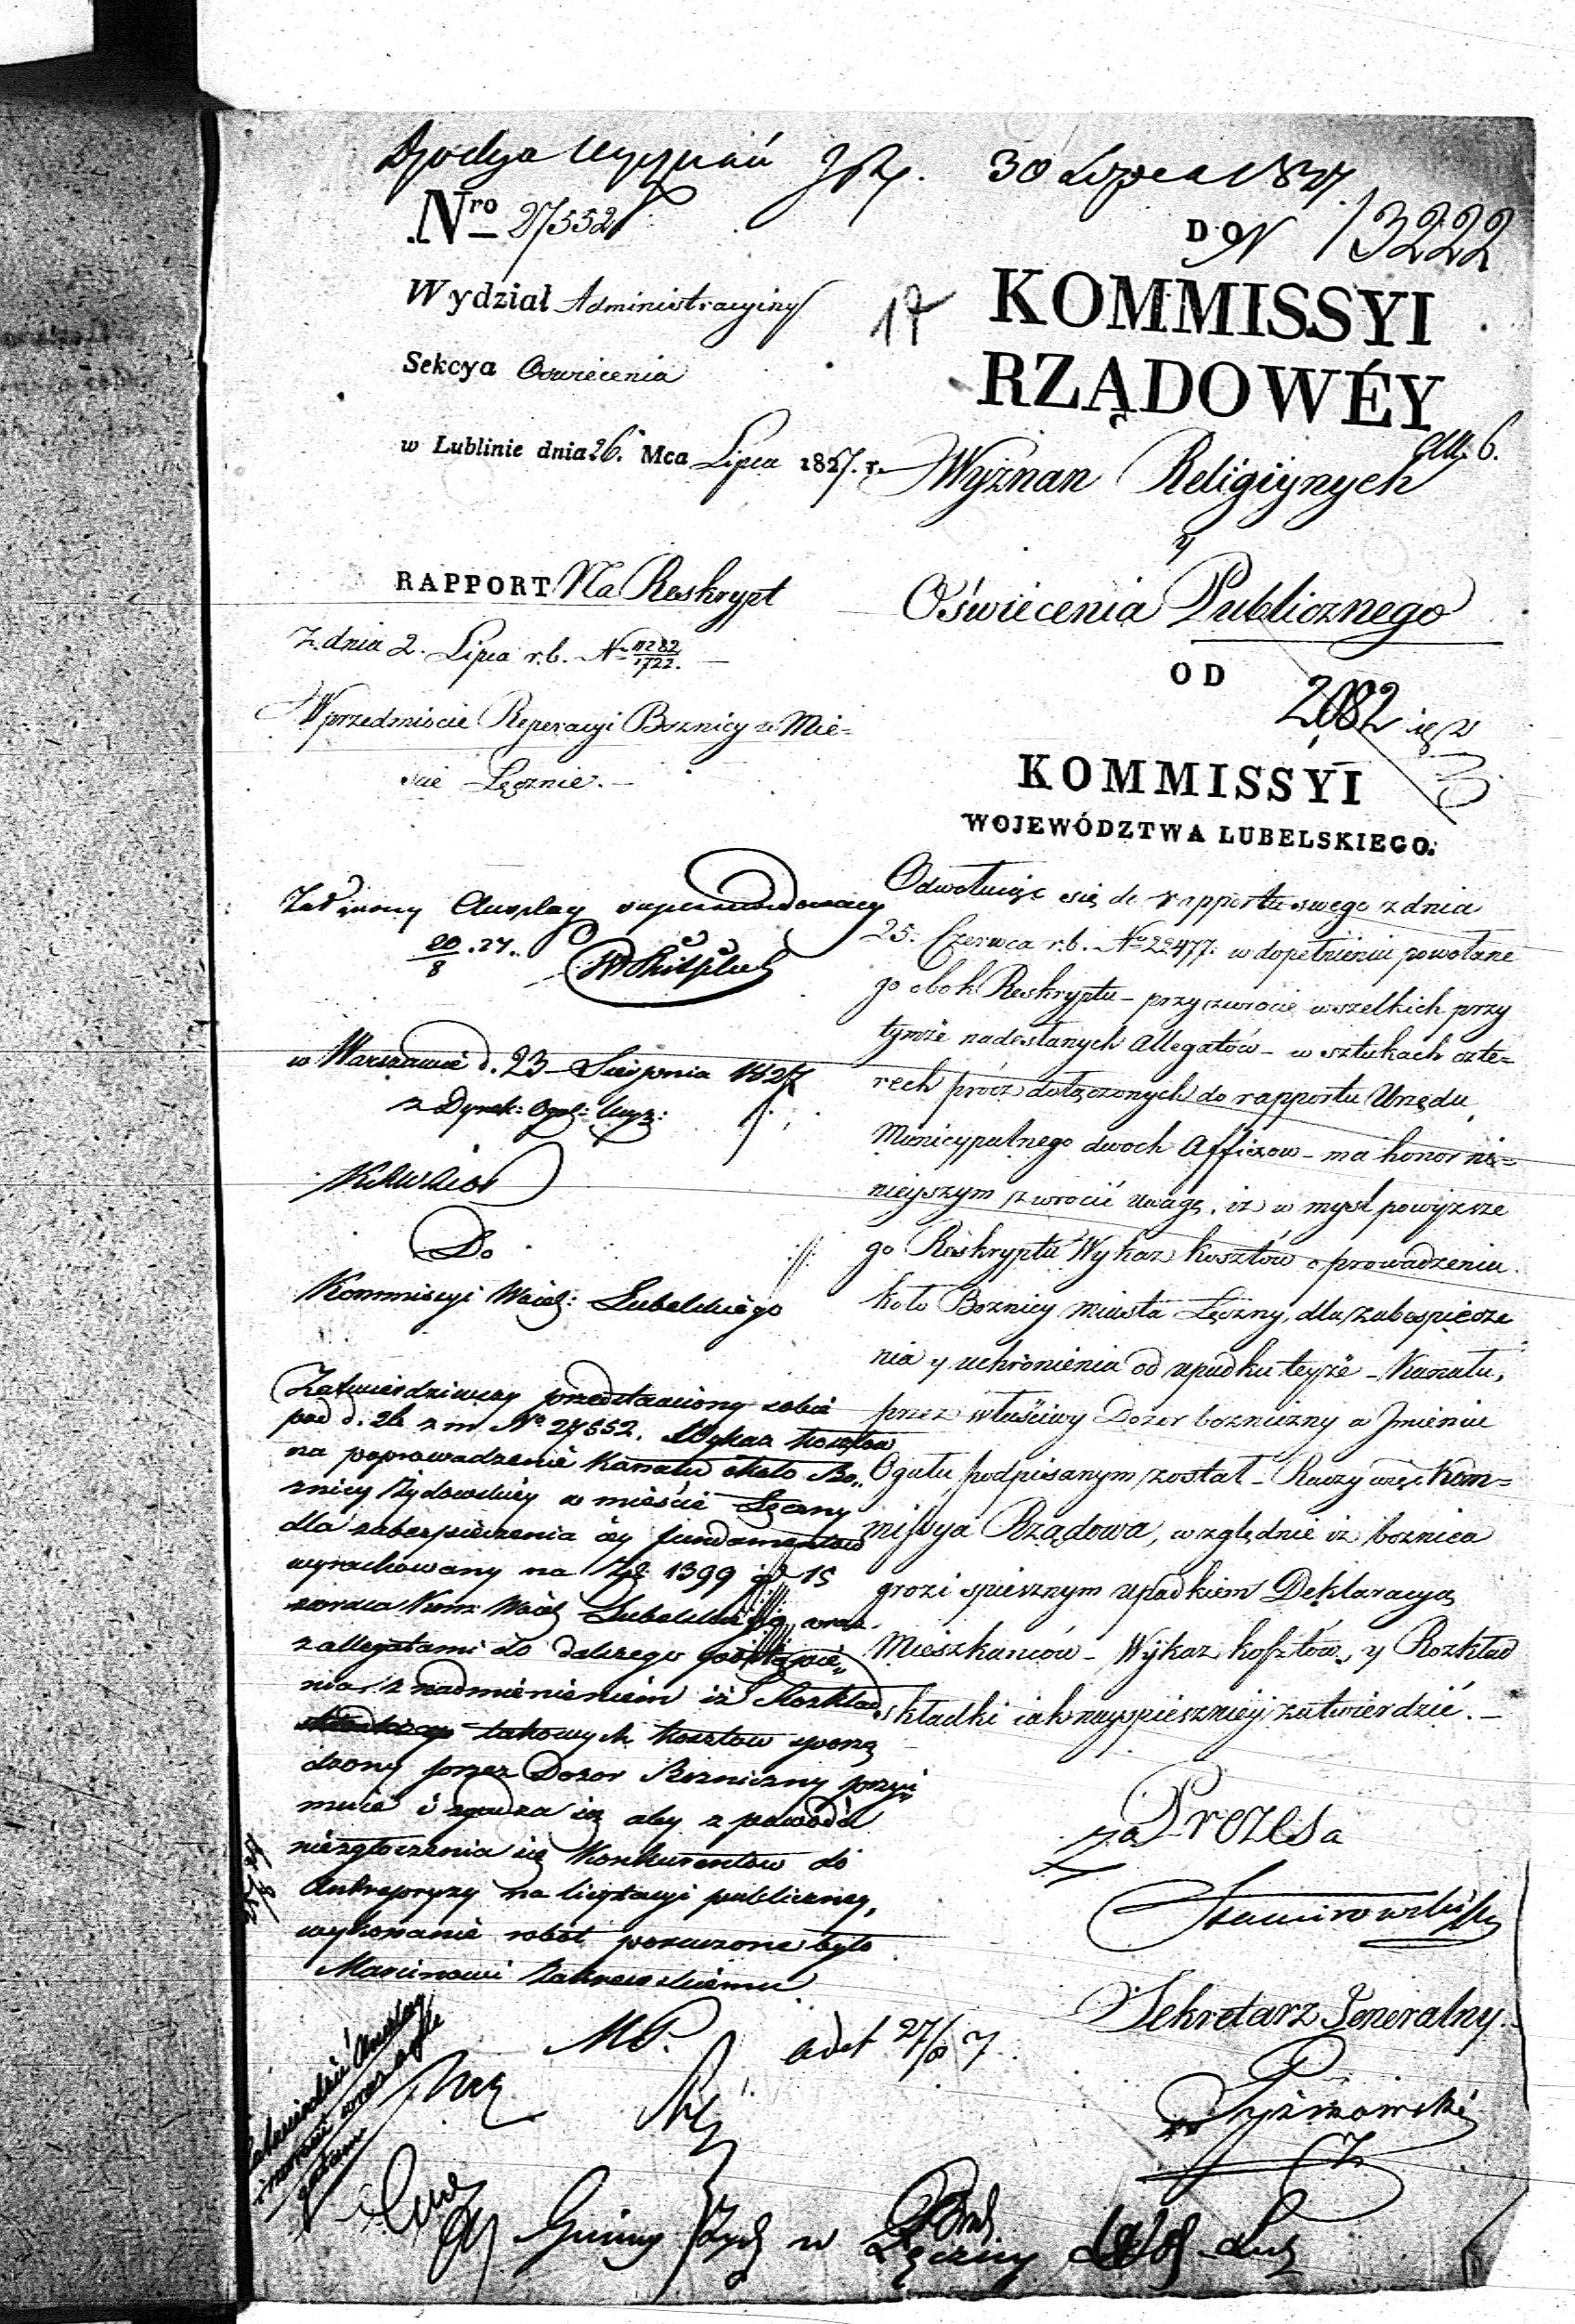 30 Lipca 1827
Nro 27552
DO N 13222
Wydział Administracyiny
17
KOMMISSYI
RZĄDOWÉY
Sekcya Oswiecenia
w Lublinie dnia 26. Mca Lipca 1827. r.
Wyznan Religiynych
y
Oświecenia Publicznego
RAPPORT Na Reskrypt
z dnia 2. Lipca r.b. N 11282/1722.
W przedmiocie Reperacyi Boznicy w Mie=
scie Lęcznie.
OD
2082
KOMMISSYI
WOJEWÓDZTWA LUBELSKIEGO.
Odwołuiąc się do rapportu swego z dnia
25. Czerwca r.b. No 22477. w dopełnieniu powołane
go obok Reskryptu – przy zwrocie wszelkich przy
tymże nadesłanych Allegatów – w sztukach czte=
rech prócz dołączonych do rapportu Urzędu
Municypalnego dwoch Affiszow – ma honor ni=
nieyszym zwrocić uwagę, iż w mysl powyższe
go Reskryptu Wykaz kosztów oprowadzenia
koło Boznicy miasta Lęczny, dla zabespiecze
nia y uchronienia od upadku teyże – Kanału,
przez właściwy Dozor bozniczny w Jmieniu
Ogułu podpisanym został – Raczy więc Kom=
missya Rządowa, względnie iż boznica
grozi spiesznym upadkiem Deklaracyą
Mieszkańców – Wykaz kosztów, y Rozkład
składki iak nayspieszniey zatwierdzić. –
za Prezesa
Sekretarz Jeneralny
20/8 .27.
w Warszawie d. 23 Sierpnia 1827
z Dyrek: Ogól: Wyz:
Do
Kommissyi Wojew: Lubelskiego
Zatwierdziwszy przedstawiony sobie
pod d. 26 z m. No 27552. Wykaz kosztow
na poprowadzenie Kanału około Bo„
znicy Żydowskiey w mieście Łęczny
dla zabezpieczenia iey fundamentow
wyrachowany na Złp 1399 gr 15
zwraca Kom: Woiew Lubelskiego wraz
z allegatami do dalszego postąpie„
nia z nadmienieniem iż Rozkład
takowych kosztow sporzą
dzony przez Dozor Bozniczny przyi„
muie i zgadza się aby z powodu
niezgłoszenia się Konkurentow do
Antrepryzy na licytacyi publiczney,
wykonanie robot poruczone było
Marcinowi Zakrzewskiemu
MP.
27/8 7
Gminy Żyd w Łęczny